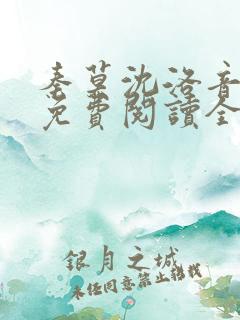 秦墓沈洛音
免費閱讀全
銀月之城
未經同意禁止轉載